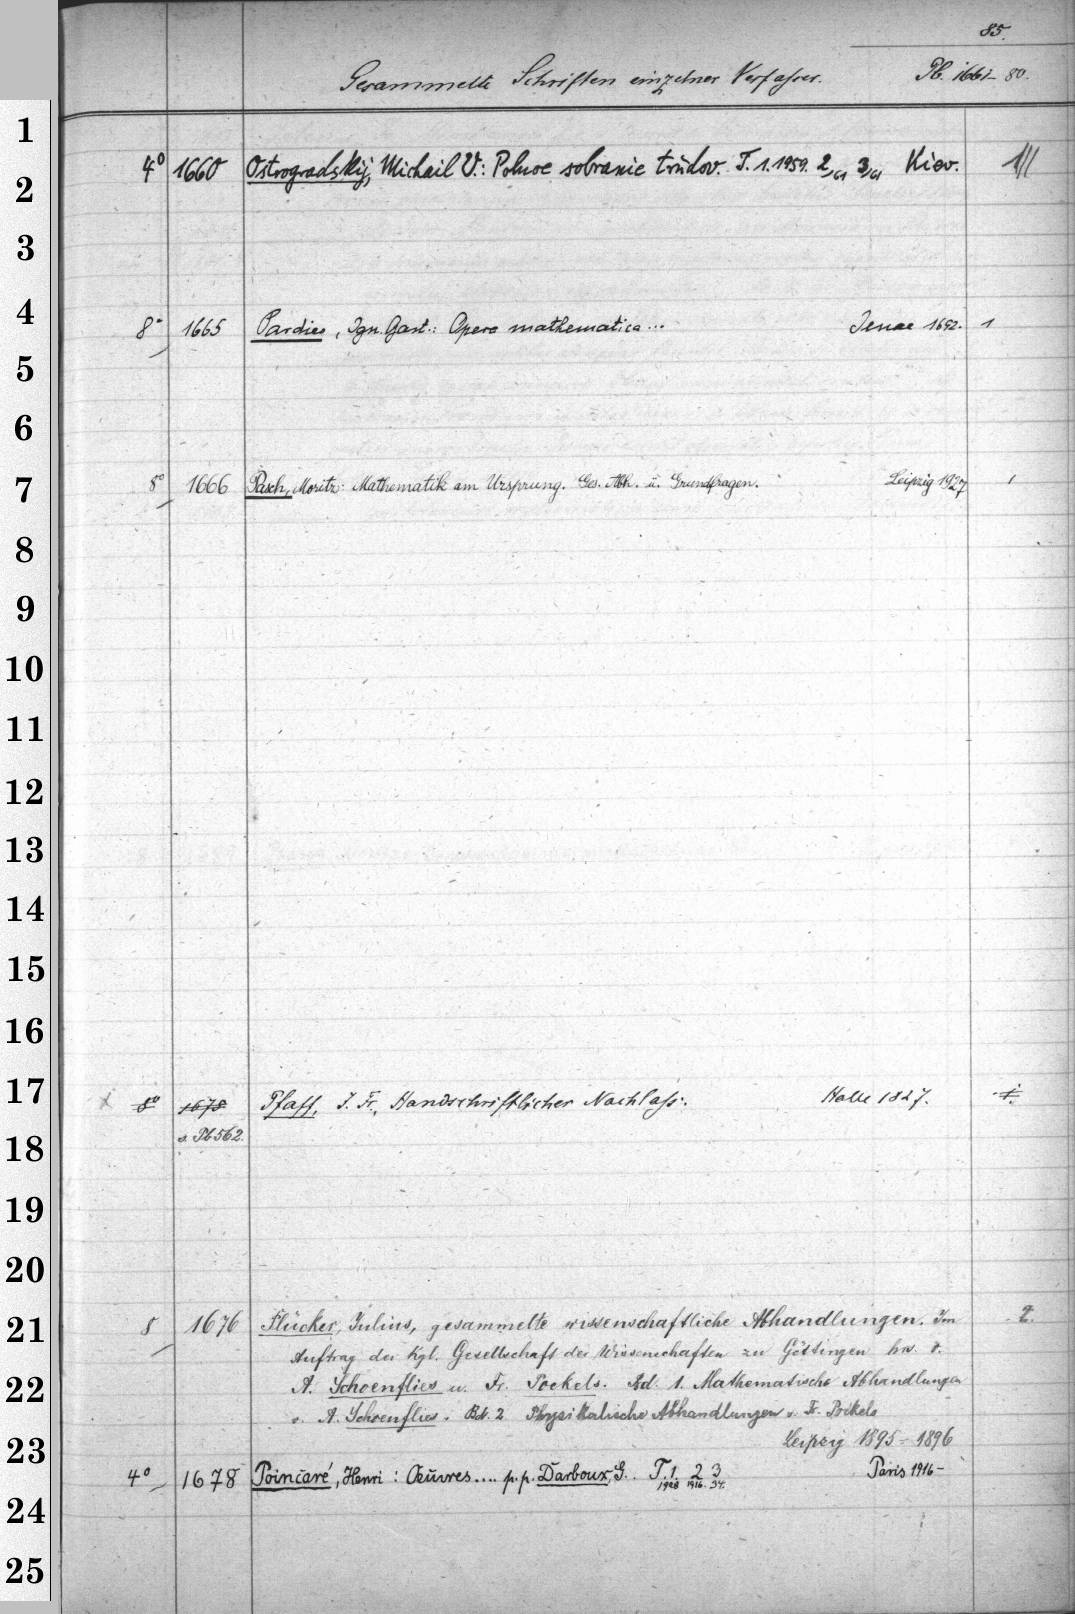 85.
Gesammelte Schriften einzelner Verfasser. Pb. 1661-80.
1
4° 1660 Ostrogradskij, Michail V.: Polnoe sobranie trudov. T. 1. 1959. 2,61 3,61 Kiev. 1//
2
3
4
8° 1665 Pardies, Ign. Gast.: Opera mathematica... Jenae 1692. 1
5
6
7
8° 1666 Pasch, Moritz: Mathematik am Ursprung. Ges. Abh. ü. Grundfragen. Leipzig 1927 1
8
9
10
11
12
13
14
15
16
17
8° 1678 Pfaff, J. Fr., Handschriftlicher Nachlass. Halle 1827. 1.
s. Pb 562.
18
19
20
21
8 1676 Plücker, Julius, gesammelte wissenschaftliche Abhandlungen. Im 2.
Auftrag der Kgl. Gesellschaft der Wissenschaften zu Göttingen hrs. v.
22
A. Schoenflies u. Fr. Pockels. Bd. 1. Mathematische Abhandlungen
v. A. Schoenflies. Bd. 2 Physikalische Abhandlungen v. Fr. Pockels
23
Leipzig 1895-1896
4° 1678 Poincaré, Henri: Œuvres.... p. p. Darboux, G. T. 1. 2 3 Paris 1916-
1928 1916. 34.
24
25